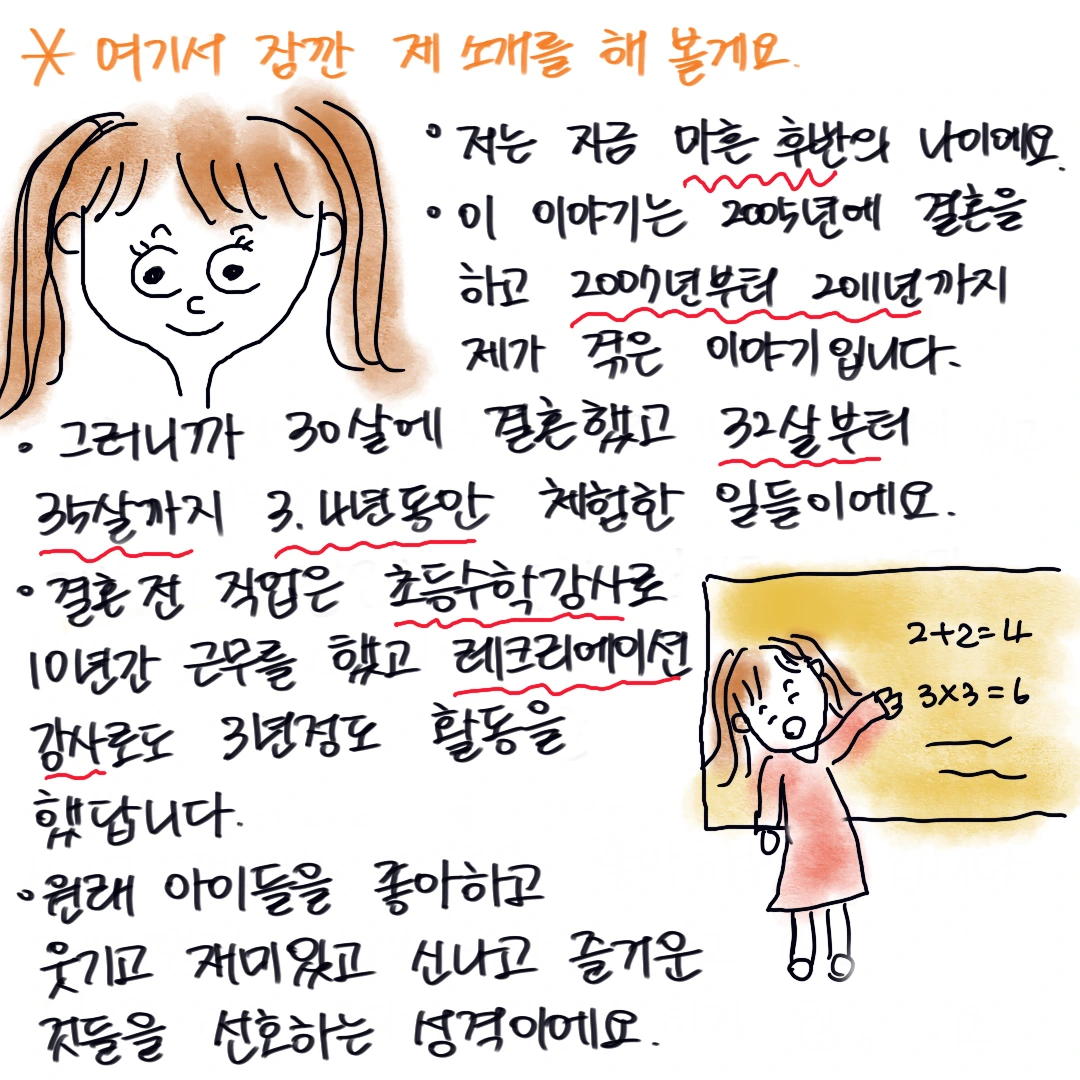 * 여기서 잠깐 제 소개를 해 볼게요.
• 저는 지금 마흔 후반의 나이에요.
• 이 이야기는 2005년에 결혼을
하고 2007년부터 2011년까지
제가 겪은 이야기입니다.
• 그러니까 30살에 결혼했고 32살부터
35살까지 3.4년동안 체험한 일들이에요.
• 결혼 전 직업은 초등수학강사로
10년간 근무를 했고 레크리에이션
강사로도 3년정도 활동을
했답니다.
2+2=4
3×3=6
• 원래 아이들을 좋아하고
웃기고 재미있고 신나고 즐거운
것들을 선호하는 성격이에요.